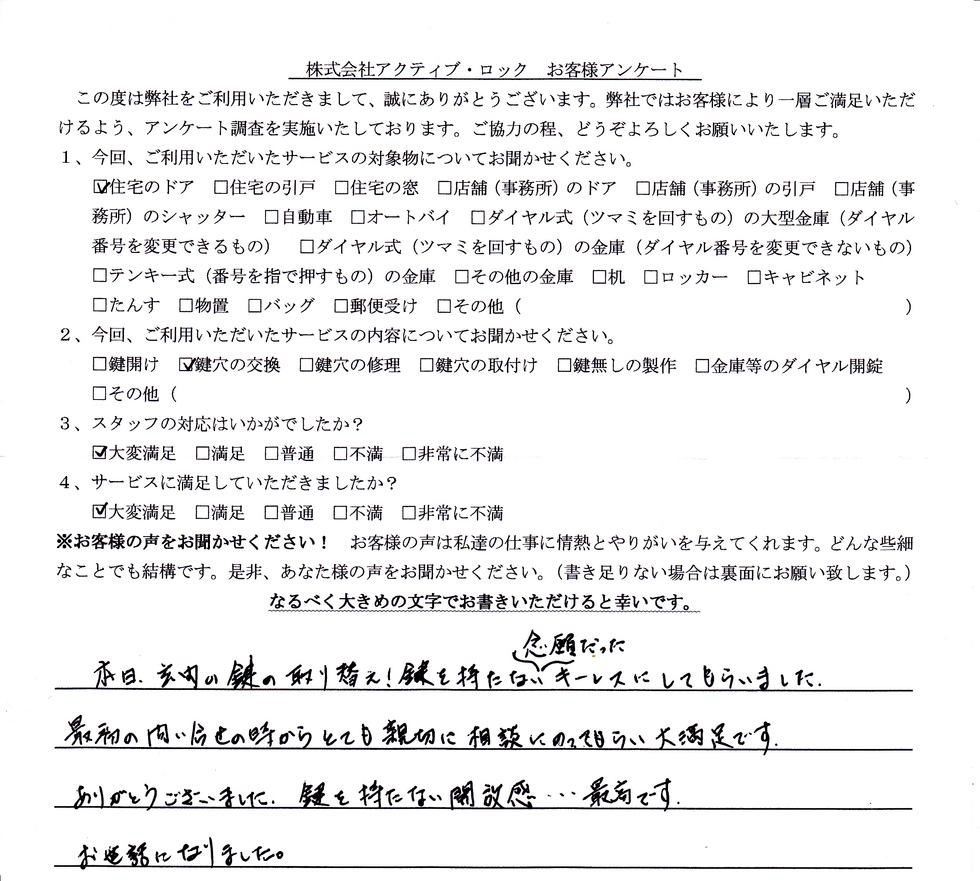 株式会社アクティブ・ロック　お客様アンケート
この度は弊社をご利用いただきまして、誠にありがとうございます。弊社ではお客様により一層ご満足いただ
けるよう、アンケート調査を実施いたしております。ご協力の程、どうぞよろしくお願いいたします。
１、今回、ご利用いただいたサービスの対象物についてお聞かせください。
☑住宅のドア　□住宅の引戸　□住宅の窓　□店舗（事務所）のドア　□店舗（事務所）の引戸　□店舗（事
務所）のシャッター　□自動車　□オートバイ　□ダイヤル式（ツマミを回すもの）の大型金庫（ダイヤル
番号を変更できるもの）　□ダイヤル式（ツマミを回すもの）の金庫（ダイヤル番号を変更できないもの）
□テンキー式（番号を指で押すもの）の金庫　□その他の金庫　□机　□ロッカー　□キャビネット
□たんす　□物置　□バッグ　□郵便受け　□その他（　　　）
２、今回、ご利用いただいたサービスの内容についてお聞かせください。
□鍵開け　☑鍵穴の交換　□鍵穴の修理　□鍵穴の取付け　□鍵無しの製作　□金庫等のダイヤル開錠
□その他（　　　）
３、スタッフの対応はいかがでしたか？
☑大変満足　□満足　□普通　□不満　□非常に不満
４、サービスに満足していただきましたか？
☑大変満足　□満足　□普通　□不満　□非常に不満
※お客様の声をお聞かせください！　お客様の声は私達の仕事に情熱とやりがいを与えてくれます。どんな些細
なことでも結構です。是非、あなた様の声をお聞かせください。（書き足りない場合は裏面にお願い致します。）
なるべく大きめの文字でお書きいただけると幸いです。
念願だった
本日、玄関の鍵の取り替え！鍵を持たないキーレスにしてもらいました。
最初の問い合せの時からとても親切に相談にのってもらい大満足です。
ありがとうございました。鍵を持たない開放感…最高です。
お世話になりました。